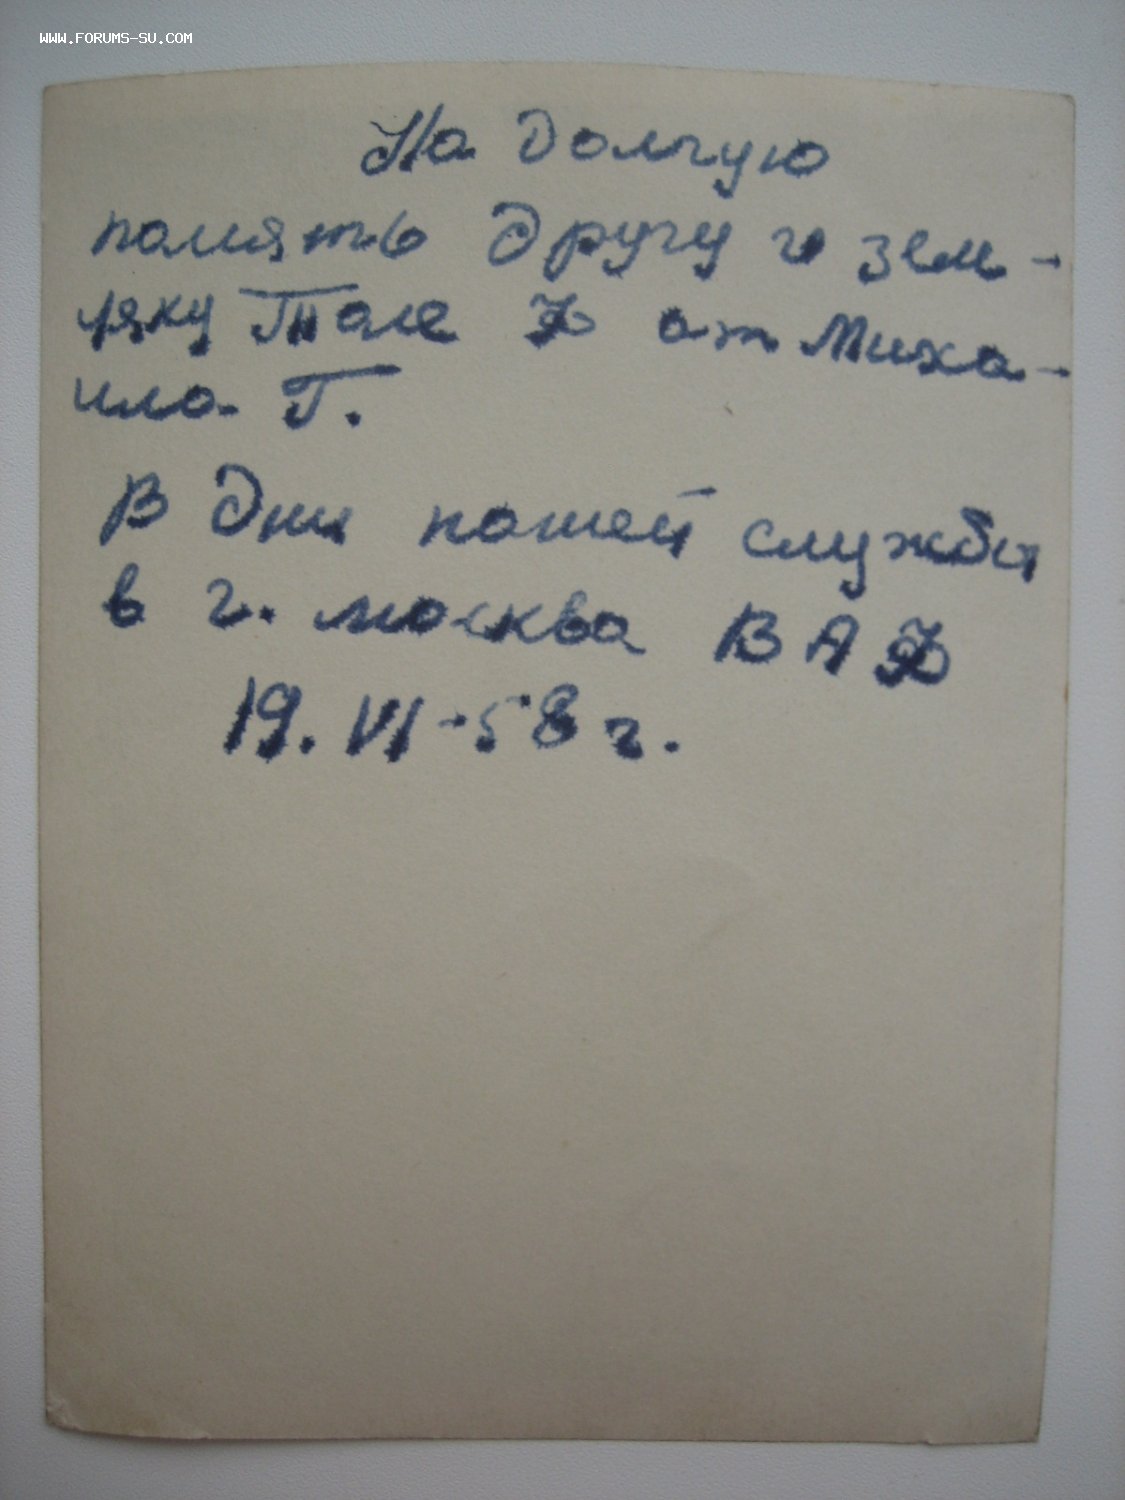 WWW.FORUMS-SU.COM
На Долгую
память Другу и зем-
ляку Толе от Миха-
ила Г.
В Дни нашей службы
в г. москва
19.VI-58г.